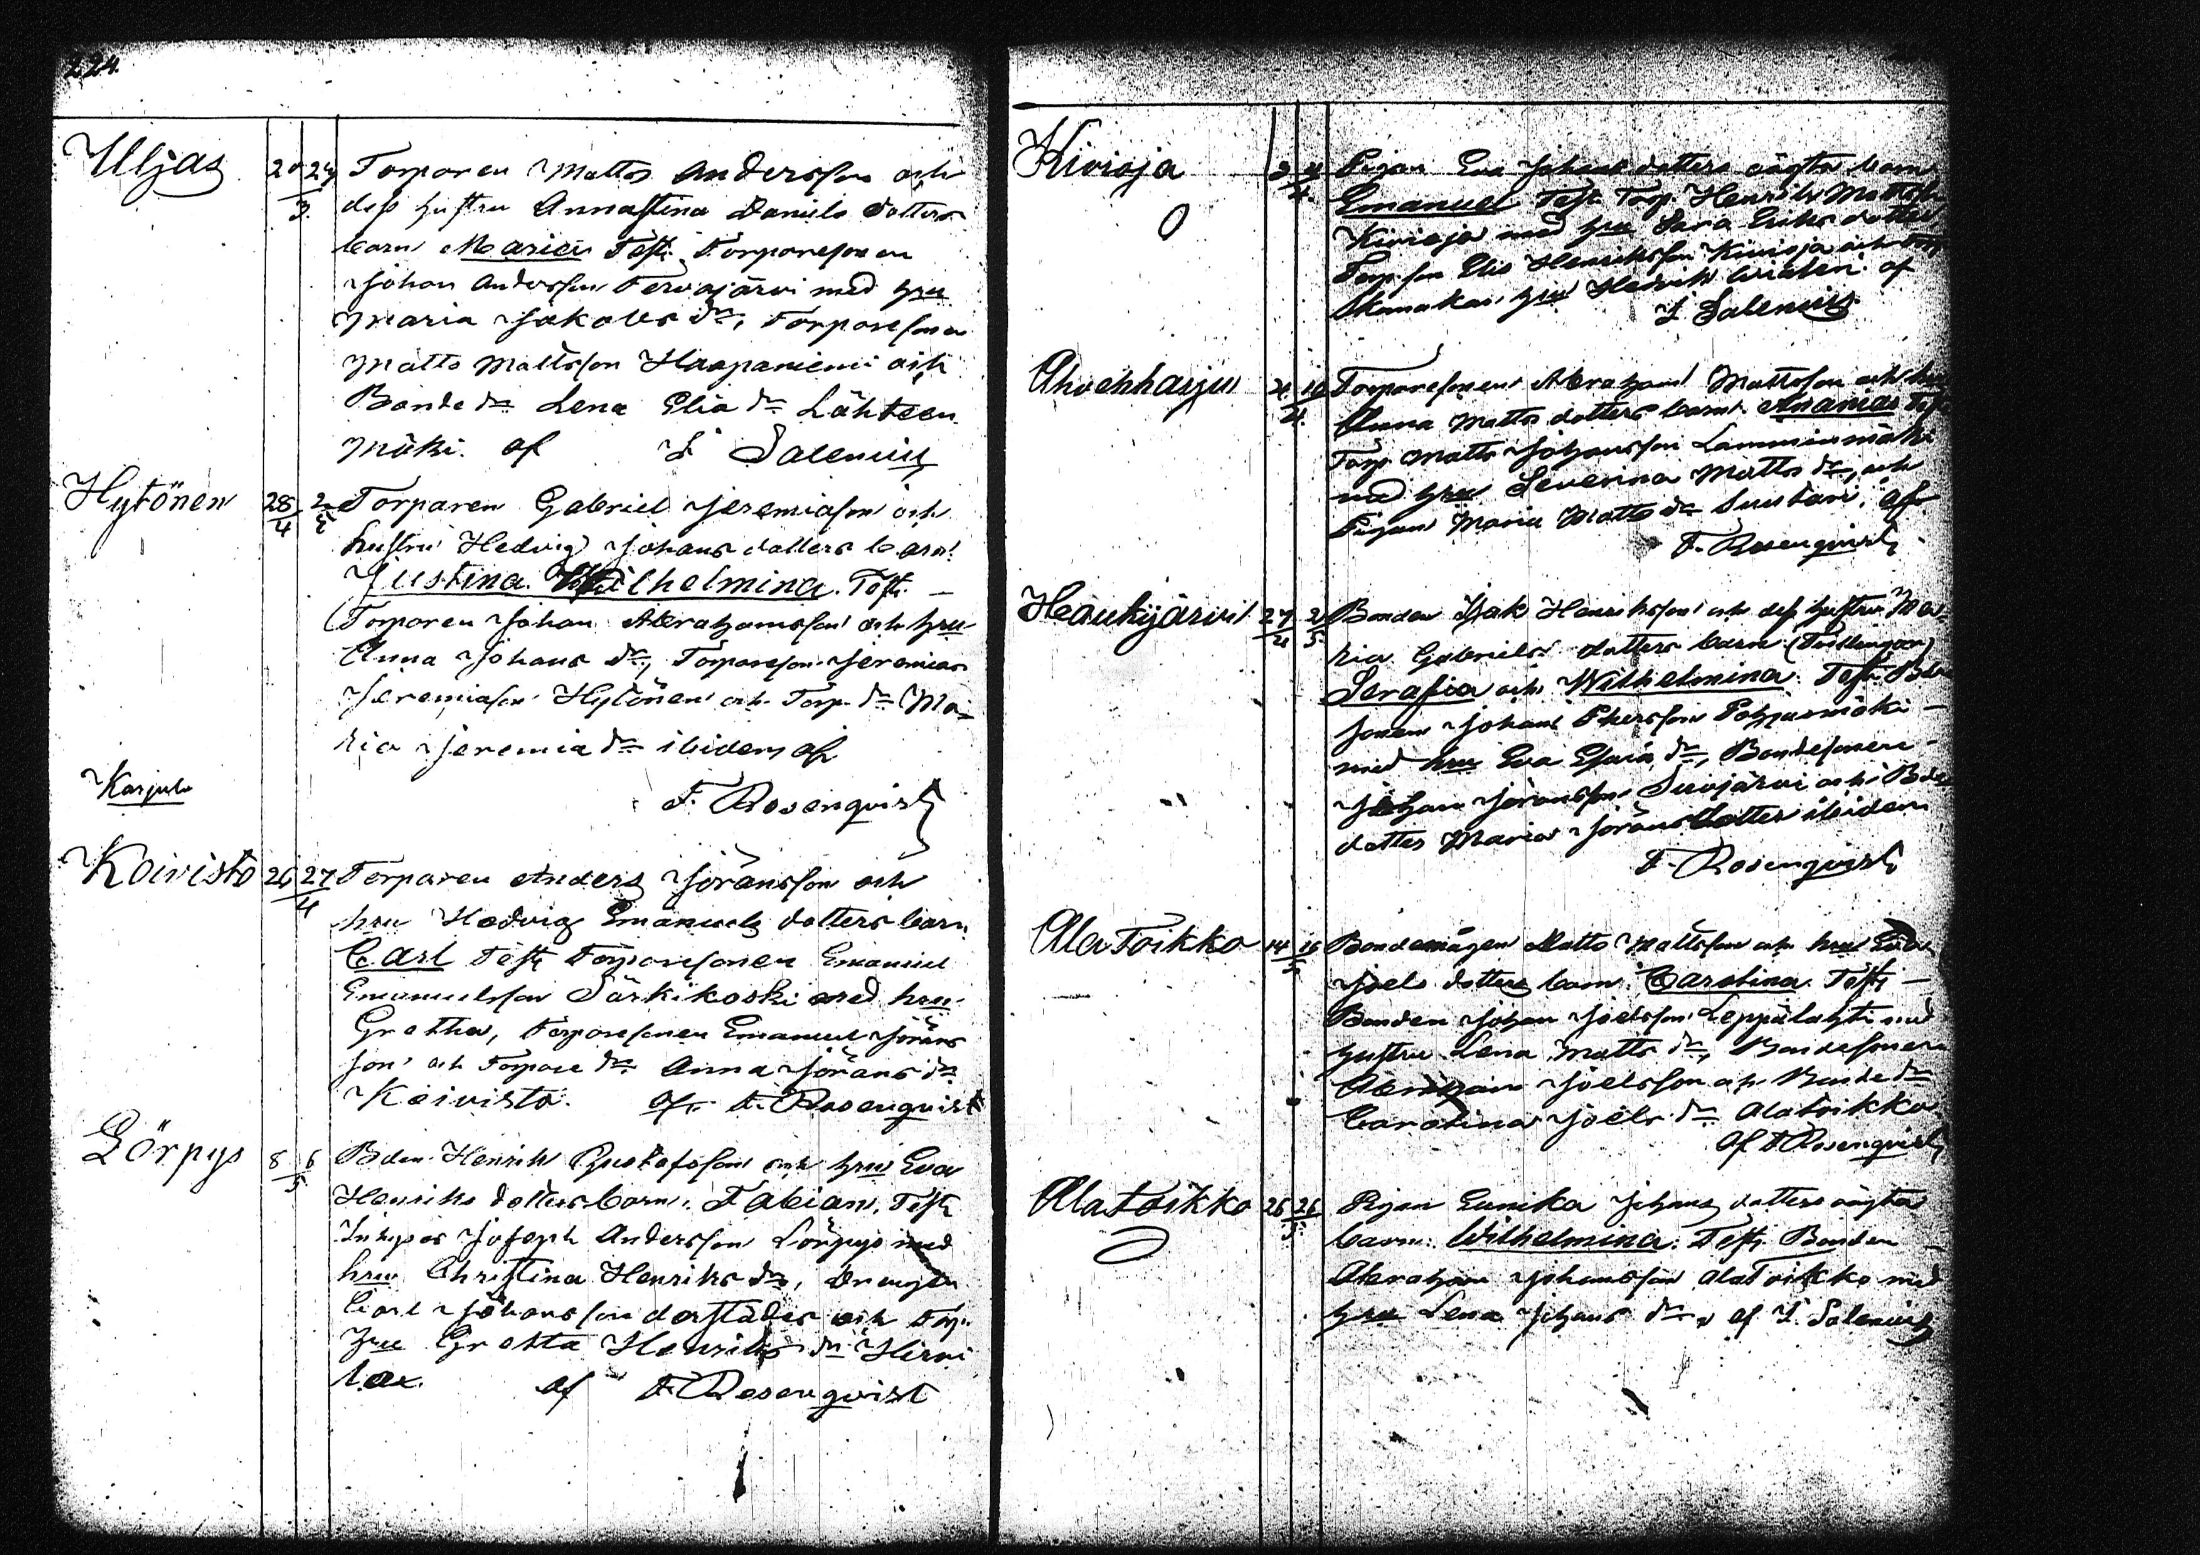 224.
Uljas 20 24/3. Torparen Matts Andersson och
dess hustru Annastina Daniels dotters
barn Maria Test. Torparesonen
Johan Andersson Tervajärvi med hru
Maria Jakobs dr, Torparesonen
Matts Mattsson Haapaniemi och
Bonde dr Lena Elia dr Lähteen
mäki. af F Salenius
Hytönen 28/4 2/5 Torparen Gabriel Jeremiasson och
hustru Hedvig Johans dotters barn
Justina Wilhelmina. Test.
Torparen Johan Abrahamsson och hru
Anna Johans dr, Torpareson Jeremias
Jeremiasson Hytönen och Torp. dr Ma-
ria Jeremia dr ibidem af
F. Rosenqvist
Karjula
Koivisto 26 27/4 Torparen Anders Jöransson och
hru Hedvig Emanuels dotters barn
Carl Test Torparesonen Emanuel
Emanuelsson Särkikoski med hru
Gretha, Torparesonen Emanuel Jörans
son och Torpare dr Anna Jörans dr
Koivisto. af F. Rosenqvist
Lörpys 8 8/5 Bden Henrik Gustafsson och hru Eva
Henriks dotters barn. Fabian. Test
Inhyses Joseph Andersson Lörpys med
hru Christina Henriks dr, Drengen
Carl Johansson derstädes och Torp.
hru Gretta Henriks dr Hirvi
lax. af F. Rosenqvist
Kivioja 3 4/4. Pigan Eva Johans dotters oägta barn
Emanuel Test Torp. Henrik Mattss
Kivioja med hru Sara Eriks dotter
Torp. son Elis Henriksson Kivioja och
hru Hedvik af
F Salenius
Ahvenharju 4 10/4. Torparesonen Abraham Mattsson och hru
Anna Matts dotters barn. Ananias Test
Torp Matts Johansson Lamminmäki
med hru Severina Matts dr, och
Pigan Maria Matts dr Suutari. af
F. Rosenqvist
Haukijärvi 27/4 2/5. Bonden Isak Henriksson och dess hustru Ma-
ria Gabriels dotters barn (Tvillingar)
Serafia och Wilhelmina. Test. Bde
sonen Johan Pohjasmäki
med hru Eva Esaia dr, Bondesonen
Johan Jöransson Suojärvi och Bde
dotter Maria Jöransdotter ibidem
F. Rosenqvist
AlaToikko 14 16/5 Bondemågen Matts Mattsson och hru Eva
Joels dotters barn. Carolina Test.
Bonden Johan Joelsson Leppälahti med
hustru Lena Matts dr, Bondesonen
Joelsson och Bonde dr
Carolina Joels dr Alatoikko
af F Rosenqvist
AlaToikko 25 26/5. Pigan Eunika Johans dotters oägta
barn. Wilhelmina. Test. Bonden
Abraham Johansson AlaToikko med
hru Lena Johans dr. af F. Salenius